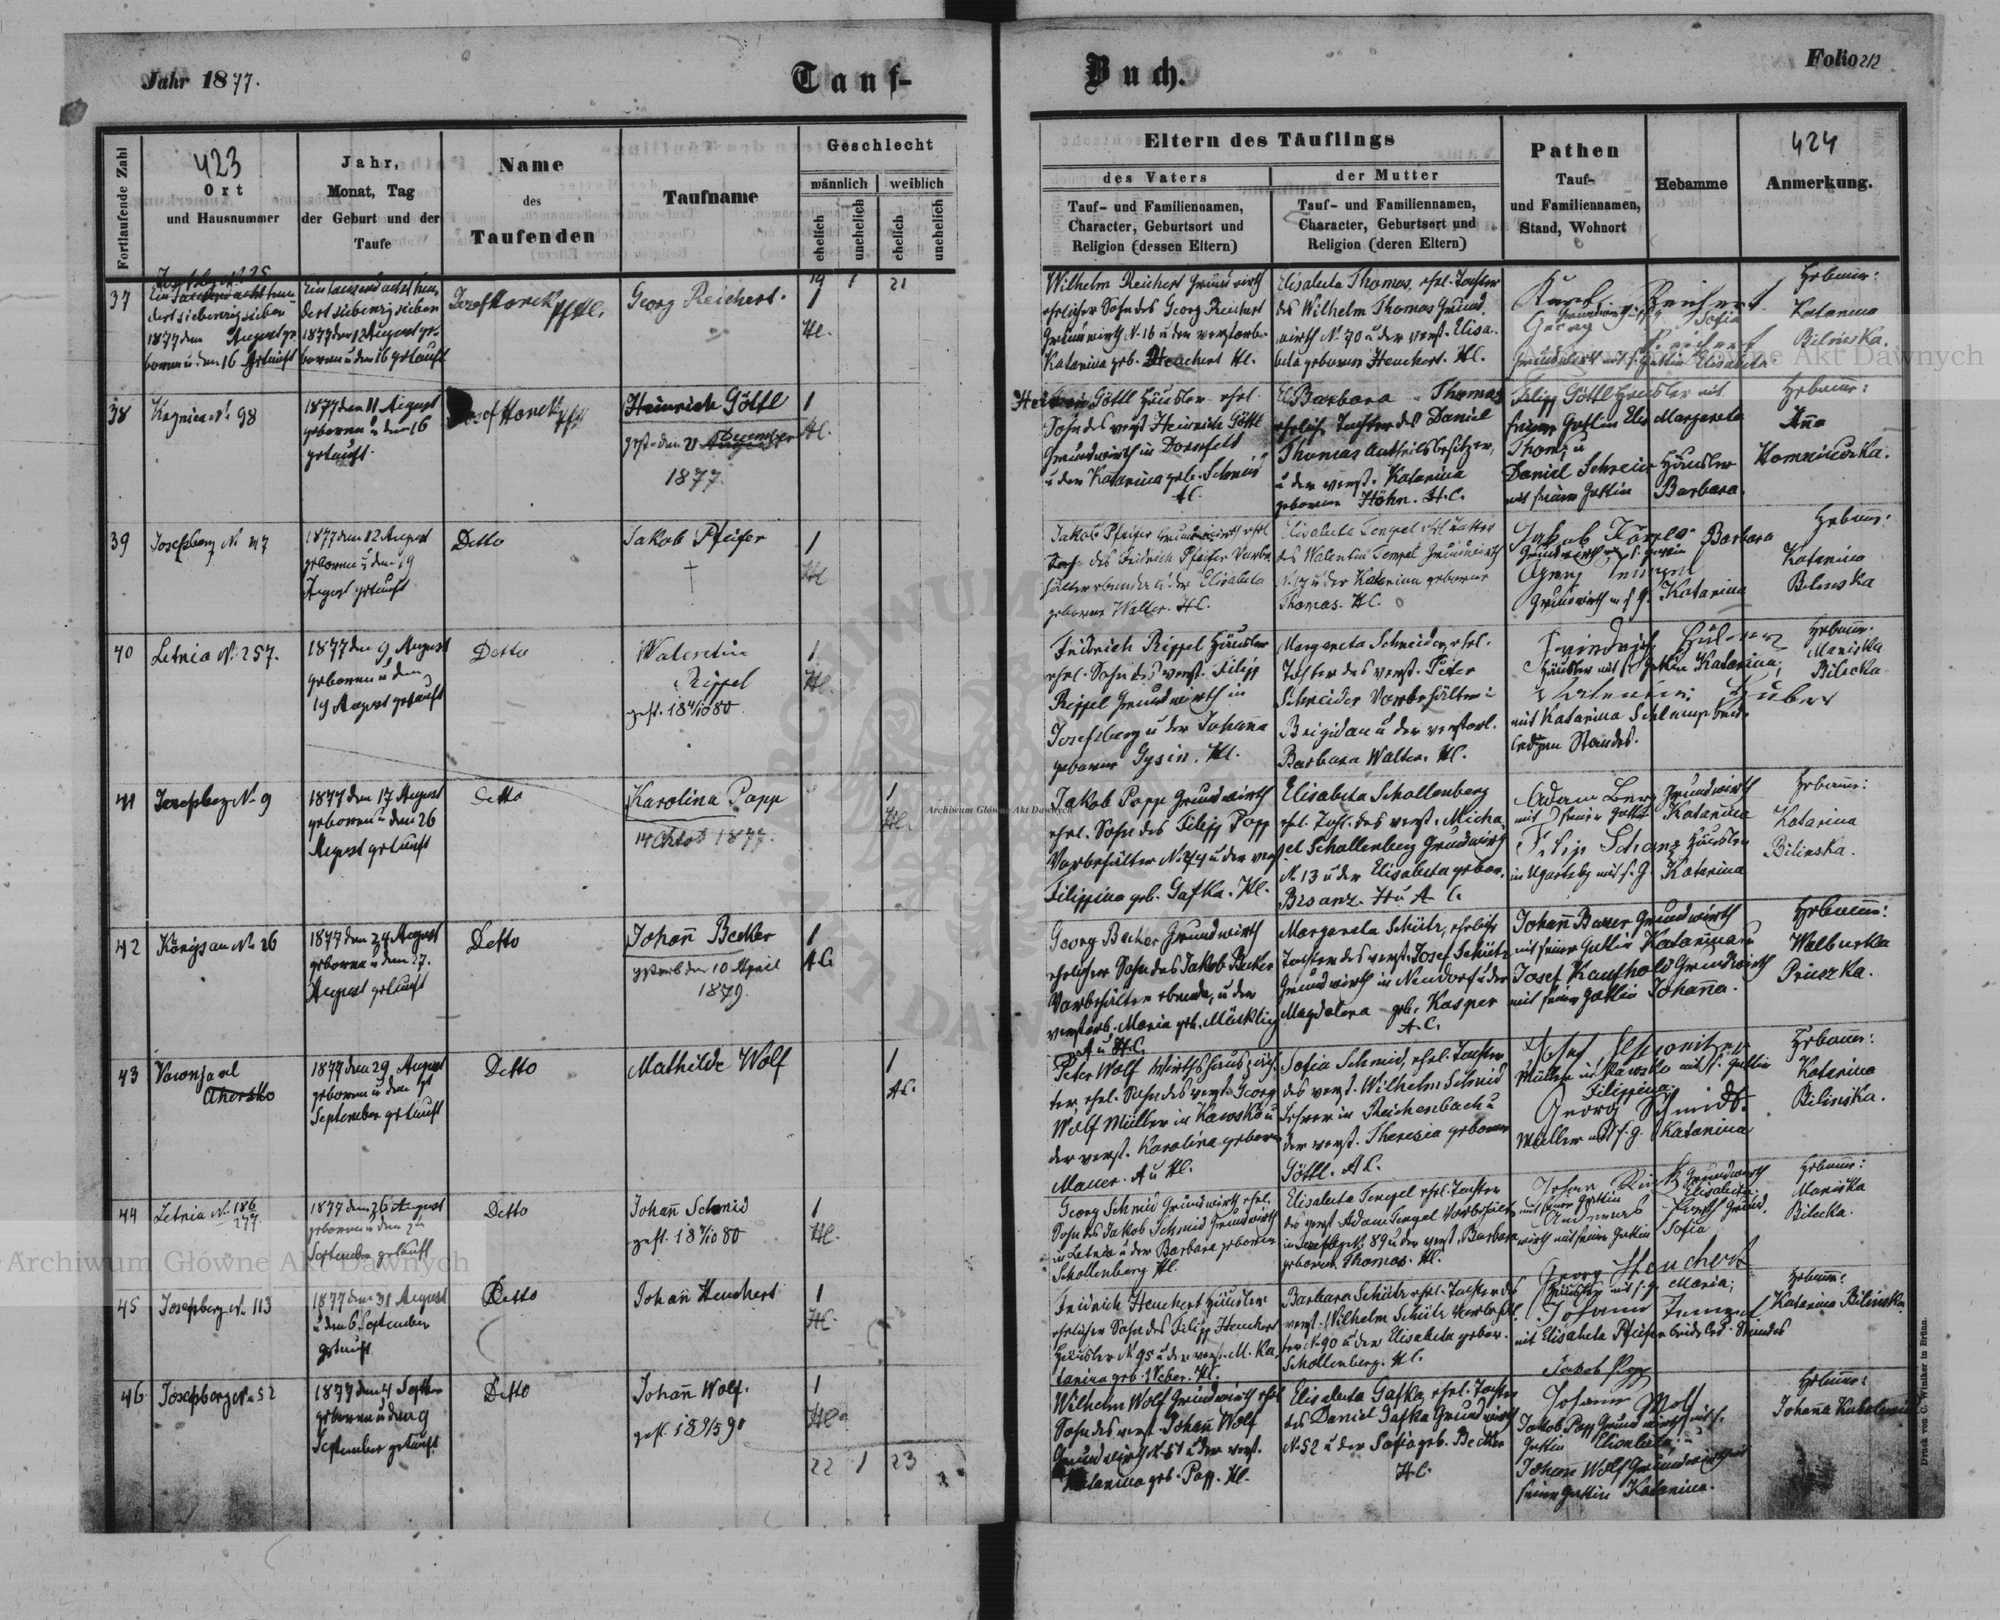 Jahr 1877.
Tauf-
Buch.
Folio 212
Fortlaufende Zahl
423
Ort
und Hausnummer
Jahr,
Monat, Tag
der Geburt und der
Taufe
Name
des
Taufenden
Taufname
Geschlecht
männlich
weiblich
ehelich
unehelich
ehelich
unehelich
Eltern des Täuflings
des Vaters
der Mutter
Tauf- und Familiennamen,
Character, Geburtsort und
Religion (dessen Eltern)
Tauf- und Familiennamen,
Character, Geburtsort und
Religion (deren Eltern)
Pathen
Tauf-
und Familiennamen,
Stand, Wohnort
Hebamme
424
Anmerkung.
19 1 21
37
1877 den August ge-
boren u. den 16 getauft
1877 den 12 August ge-
boren u den 16 getauft
Georg Reichert.
1
HC.
Wilhelm Reichert Grundwirth
ehelicher Sohn des Georg Reichert
Grundwirth N. 16 u der verstorb.
Katarina geb. Heuchert HC.
Elisabeta Thomas, ehel. Tochter
des Wilhelm Thomas Grund-
wirth N. 70 u der verst. Elisa-
beta geborene Heuchert. HC.
Hebamme:
Katarina
Bilinska.
38
98
1877 den 11 August
geboren u den 16
getauft.
Heinrich Göttl
gest. den 21 December
1877.
1
HC.
Göttl Häusler ehel.
Sohn des verst. Heinrich Göttl
Grundwirth in Dornfeld
u der Katarina geb. Schmid
Barbara Thomas
eheliche Tochter des Daniel
Thomas Antheilsbesitzer,
u der verst. Katarina
geborene Höhn. H.C.
Filipp Göttl Häusler mit
Margareta
Daniel Schreier Häusler
mit seiner Gattin Barbara.
Hebamme:
Anna
39
Josefsberg N. 47
1877 den 12 August
geboren u den 19
August getauft
Detto
Jakob Pfeifer
†
1
HC
Jakob Pfeifer Grundwirth ehel
geborene Walter. HC.
Elisabeta Tempel ehel Tochter
des Walentin Tempel Grundwirth
N. 17 u der Katarina geborene
Thomas. HC.
Barbara
Grundwirth Katarina
Hebamme:
Katarina
Bilinska
40
Letnia N. 257.
1877 den 9 August
geboren u den
19 August getauft
Detto
Walentin
Rippel
gest. 18 4/10 80
1
HC.
Fridrich Rippel Häusler
ehel. Sohn des verst. Filipp
Rippel Grundwirth in
Josefsberg u der Johanna
geborene Gysin. HC.
Margareta Schneider, ehel.
Tochter des verst. Peter
Schneider Vorbehälter in
Brigidau u der verstorb.
Barbara Walter. HC.
Häusler mit s. Gattin Katarina;
mit Katarina
ledigen Standes.
Hebamme:
Mariska
Bilecka
41
Josefsberg N. 9
1877 den 17 August
geboren u den 26
August getauft
Detto
Karolina Popp
14 Octob 1877.
1
HC.
Jakob Popp Grundwirth
ehel. Sohn des Filipp Popp
Vorbehälter N. 24 u der verst
Filippina geb. Gafka. HC.
Elisabeta Schollenberg
ehel. Tocht. des verst. Micha-
el Schollenberg Grundwirth
N. 13 u der Elisabeta gebor.
Bisanz. H u A C.
Adam Berg Grundwirth
mit seiner Gattin Katarina
Filip Schanz Häusler
in Ugartsbg mit s. G. Katarina
Hebamme:
Katarina
Bilinska.
42
Königsau N. 26
1877 den 24 August
geboren u den 27.
August getauft
Detto
Johann Becker
gestorb den 10 April
1879.
1
A.C.
Georg Becker Grundwirth
ehelicher Sohn des Jakob Becker
Vorbehälter ebenda, u der
verstorb. Maria geb. Mücklig
A u H.C.
Margareta Schütz, eheliche
Tochter des verst. Josef Schütz
Grundwirth in Neudorf u der
Magdalena geb. Kasper
A.C.
Johann Bauer Grundwirth
mit seiner Gattin Katarina u
Josef Kaufhold Grundwirth
mit seiner Gattin Johanna.
Hebamme:
Walburka
43
1877 den 29 August
geboren u den 1st
September getauft
Detto
Mathilde Wolf
1
A.C.
Peter Wolf Wirthshauspäch-
ter ehel. Sohn des verst. Georg
Wolf Müller in Kawsko u
der verst. Karolina geborene
Mauer. A u HC.
Sofia Schmid, ehel. Tochter
des verst. Wilhelm Schmid
Lehrer in Reichenbach u
der verst. Theresia geborene
Göttl. A C.
Müller in Kawsko mit s. Gattin
Filippina
Georg Schmidt.
Müller mit s. G. Katarina
Hebamme:
Katarina
Bilinska.
44
Letnia N. 186
277.
1877 den 26 August
geboren u den 2ten
September getauft
Detto
Johann Schmid
gest. 18 9/10 80
1
HC.
Georg Schmid Grundwirth ehel.
Sohn des Jakob Schmid Grundwirth
in Letnia u der Barbara geborene
Schollenberg HC.
Elisabeta Tempel ehel. Tochter
des verst Adam Tempel Vorbehälter
in Josefsbg N. 89 u der verst. Barbara
geborene Thomas. HC.
Grundwirth
Elisabeta
wirth mit seiner Gattin Sofia
Hebamme:
Mariska
Bilecka.
45
Josefsberg N. 113
1877 den 31 August
u den 6 September
getauft
Detto
Johann Heuchert
1
HC.
Fridrich Heuchert Häusler
ehelicher Sohn des Filipp Heuchert
Häusler N. 95 u der verst. M. Ka-
tarina geb. Weber. HC.
Barbara Schütz ehel. Tochter des
verst. Wilhelm Schütz Vorbehäl-
ter N. 90 u der Elisabeta gebor.
Schollenberg. HC.
Georg Heuchert
Häusler mit s. G. Maria;
Johann Tempel
mit Elisabeta Pfeifer beide led. Standes
Hebamme:
Katarina Bilinska
46
Josefsberg N. 52
1877 den 4 Septber
geboren u den 9
September getauft
Detto
Johann Wolf.
gest. 18 9/5 90
1
HC.
Wilhelm Wolf Grundwirth ehel
Sohn des verst. Johann Wolf
Grundwirth N. 51 u der verst.
Katarina geb. Popp. HC.
Elisabeta Gafka, ehel. Tochter
des Daniel Gafka Grundwirth
N. 52 u der Sofia geb. Becker
H.C.
Jakob Popp
Johann Wolf
Jakob Popp Grundwirth mit s.
Gattin Elisabeta; u
Johann Wolf Grundwirth mit
seiner Gattin Katarina.
Hebamme:
Johanna
22 1 23
Druck von C. Winiker in Brünn.
Archiwum Główne Akt Dawnych
Archiwum Główne Akt Dawnych
Archiwum Główne Akt Dawnych